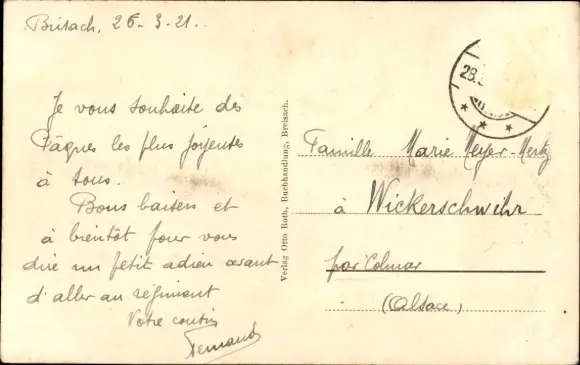 Breisach, 26-3-21.
Je vous souhaite des
Pâques les plus joyeuses
à tous.
Bons baisers et
à bientôt pour vous
dire un petit adieu avant
d'aller au régiment
Votre cousin
Fernand
Verlag Otto Roth, Buchhandlung, Breisach.
28.
Famille Marie Meyer-Mertz
à Wickerschwihr
par Colmar
(Alsace)